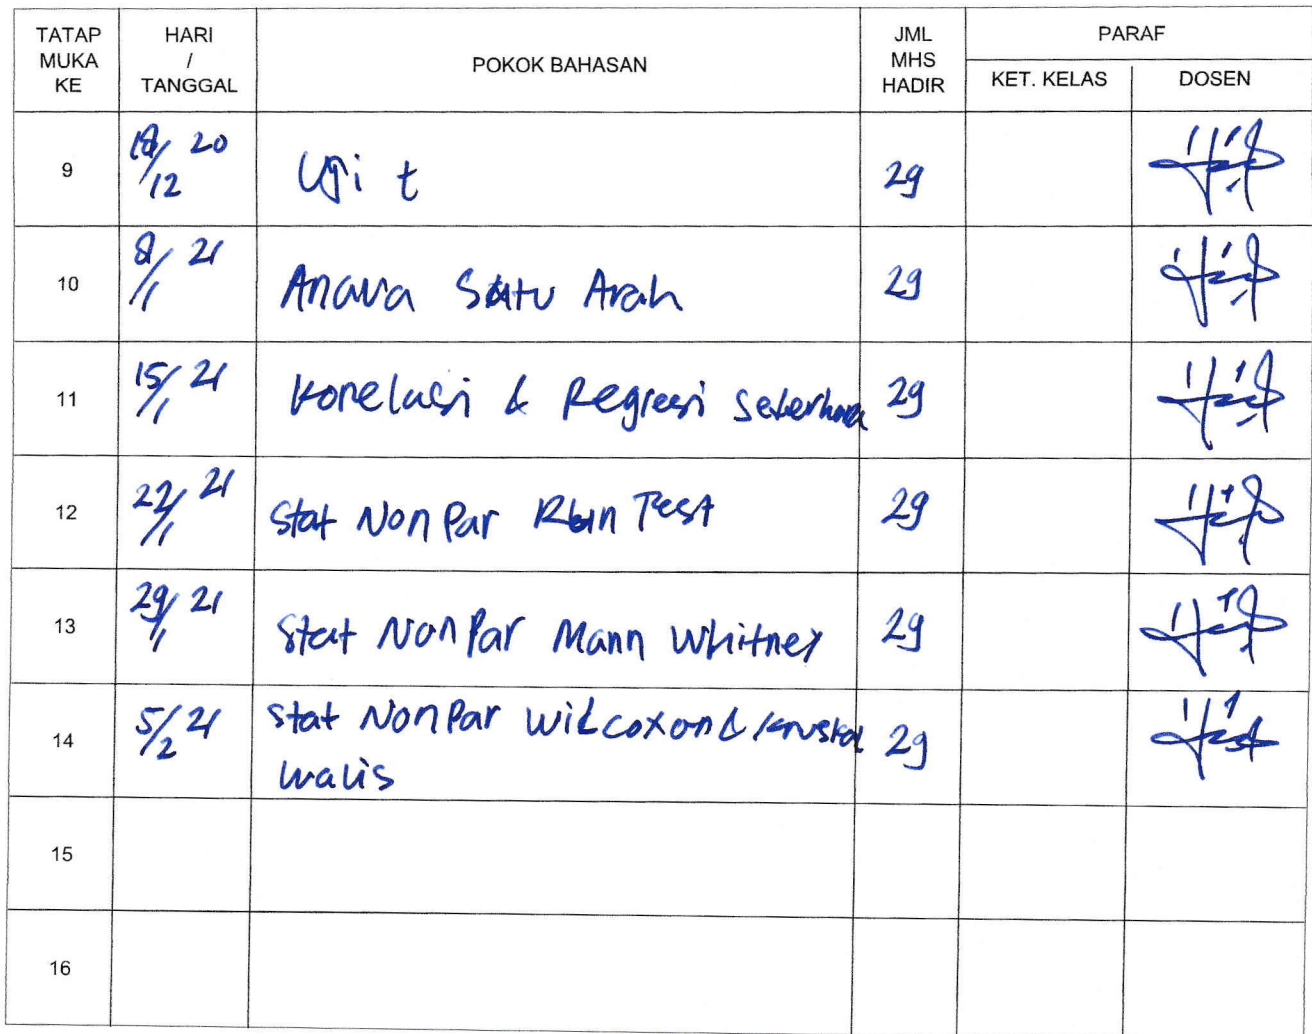 TATAP MUKA KE | HARI / TANGGAL | POKOK BAHASAN | JML MHS HADIR | PARAF
KET. KELAS | DOSEN
9 | 18/12 20 | Uji t | 29
10 | 8/1 21 | Anava Satu Arah | 29
11 | 15/1 21 | Korelasi & Regresi Sederhana | 29
12 | 22/1 21 | Stat Non Par Run Test | 29
13 | 29/1 21 | Stat Non Par Mann Whitney | 29
14 | 5/2 21 | Stat Non Par Wilcoxon & Kruskal | 29
Walis
15
16